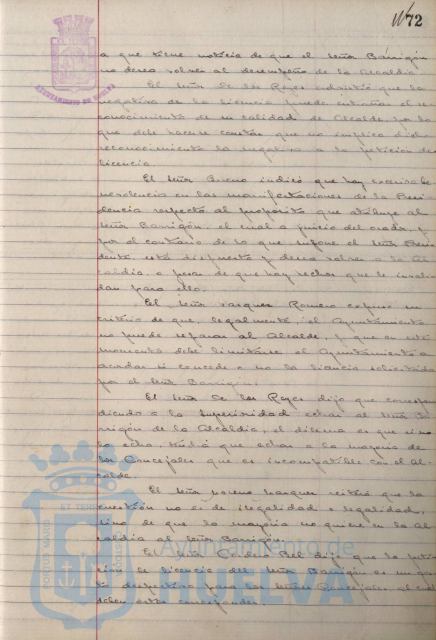 72
a que tiene noticia de que el señor Barrigón
no desea volver al desempeño de la Alcaldía
El señor De los Reyes advirtió que la
negativa de la licencia puede entrañar el re-
conocimiento de su calidad de Alcalde por lo
que debe hacerse constar que no implica dicho
reconocimiento la negativa a la petición de
licencia.
El señor Bueno indicó que hay excesiva be-
nevolencia en las manifestaciones de la Presi-
dencia respecto al propósito que atribuye al
señor Barrigón, el cual a juicio del orador, y
por el contrario de lo que supone el señor Presi-
dente, está dispuesto y desea volver a la Al-
caldía, a pesar de que hay hechos que le invali-
dan para ello.
El señor Vazquez Romero expuso su
criterio de que, legalmente, el Ayuntamiento
no puede separar al Alcalde, y que en este
momento debe limitarse el Ayuntamiento a
acordar si concede o no la licencia solicitada
por el señor Barrigón.
El señor De los Reyes dijo que correspon-
diendo a la Superioridad echar al señor Ba-
rrigón de la Alcaldía, el dilema es que si no
lo echa, tendrá que echar a la mayoría de
los Concejales que es incompatible con el Al-
calde.
El señor Moreno Vazquez reiteró que la
cuestión no es de ilegalidad o legalidad,
sino de que la mayoría no quiere en la Al-
caldía al señor Barrigón.
El señor dijo que la peti-
ción de licencia del señor Barrigón es un ges-
to despectivo para los señores Concejales, al cual
deben estos corresponder.
AYUNTAMIENTO DE HUELVA
Ayuntamiento de
HUELVA
PORTUS MARIS ET TERRAE CUSTODIA